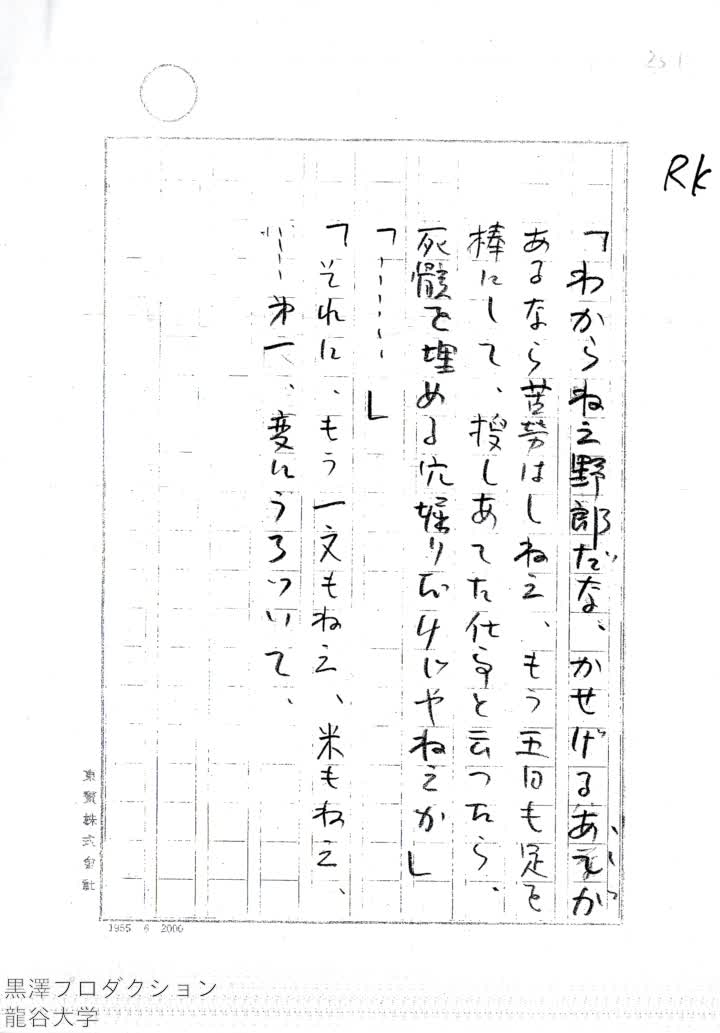 251
RK
「わからねえ野郎だな、かせげるあてが
あるなら苦労はしねえ、もう五日も足を
棒にして、探しあてた仕事と云ったら、
死骸を埋める穴掘りだけじゃねえか」
「……」
「それに、もう一文もねえ、米もねえ、
……第一、変にうろついて、
東寳株式會社
1955 6 2000
黒澤プロダクション
龍谷大学